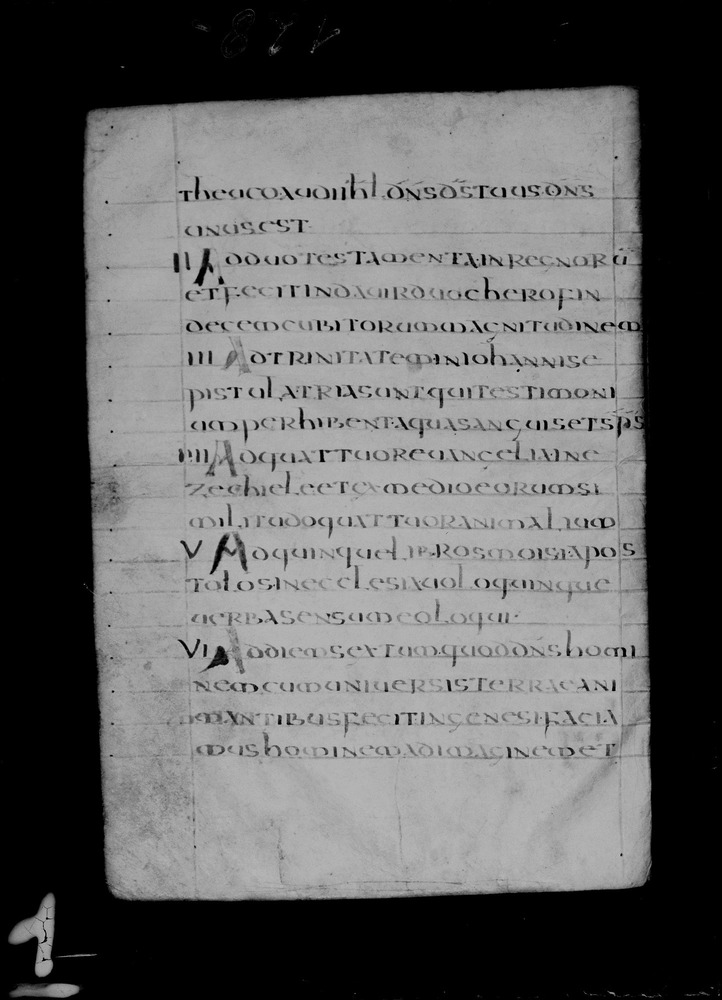 theuco audi ihl dns ds tuus dns
unus est
II Ad duo testamenta in regnoru
et fecit in dauir duo cherofin
decem cubitorum magnitudinem
III Ad trinitatem in iohannis e
pistula tria sunt qui testimoni
um perhibent aqua sanguis et sps
IIII Ad quattuor euangelia in e
zechiel et ex medio eorum si
militudo quattuor animalium
V Ad quinque libros moisi apos
tolos in ecclesia uolo quinque
uerba sensu meo loqui
VI Ad diem sextum quod dns homi
nem cum uniuersis terrae ani
mantibus fecit in genesi facia
mus hominem ad imaginem et